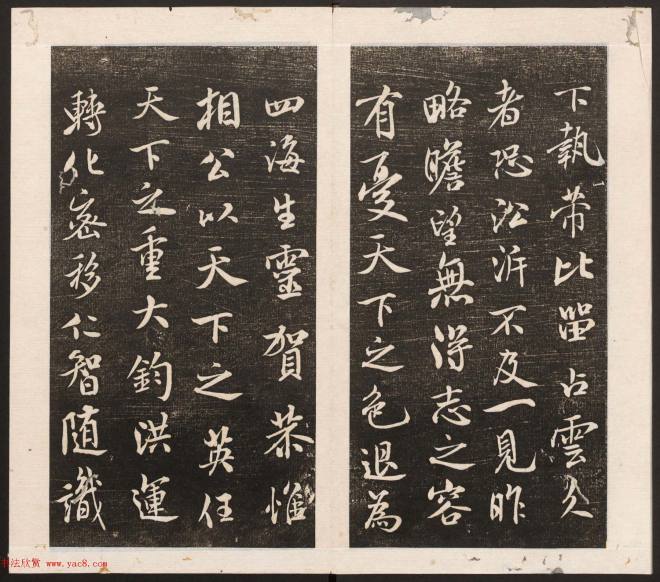 下執帶比留占雲久
者恐沿泝不及一見昨
略瞻望無得志之容
有憂天下之色退為
四海生靈賀恭惟
相公以天下之英任
天下之重大鈞洪運
轉化密移仁智隨識
书法欣赏 www.yac8.com